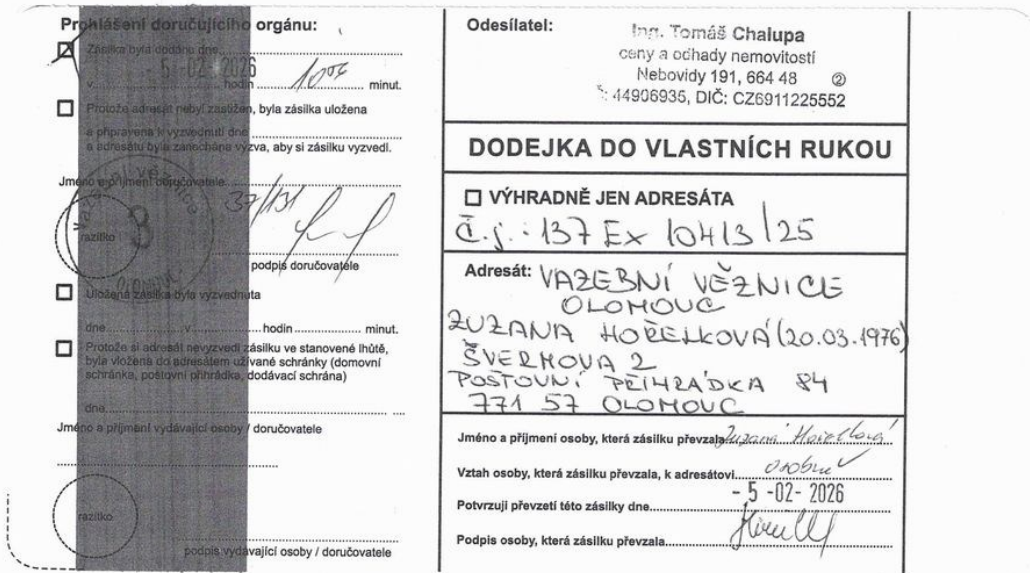 Prohlášení doručujícího orgánu:
Zásilka byla dodána dne
- 5 -02- 2026
v hodin 10 06 minut.
Protože adresát nebyl zastižen, byla zásilka uložena
a připravena k vyzvednutí dne
a adresátu byla zanechána výzva, aby si zásilku vyzvedl.
Jméno a příjmení doručovatele
37/131
Vazební věznice
8
OLOMOUC
razítko
podpis doručovatele
Uložená zásilka byla vyzvednuta
dne v hodin minut.
Protože si adresát nevyzvedl zásilku ve stanovené lhůtě,
byla vložena do adresátem užívané schránky (domovní
schránka, poštovní přihrádka, dodávací schrána)
dne
Jméno a příjmení vydávající osoby / doručovatele
razítko
podpis vydávající osoby / doručovatele
Odesílatel:
Ing. Tomáš Chalupa
ceny a odhady nemovitostí
Nebovidy 191, 664 48 ②
44906935, DIČ: CZ6911225552
DODEJKA DO VLASTNÍCH RUKOU
VÝHRADNĚ JEN ADRESÁTA
Č.j.: 137 Ex 10413/25
Adresát: VAZEBNÍ VĚZNICE
OLOMOUC
ZUZANA HOŘELKOVÁ (20.03.1976)
ŠVERMOVA 2
POŠTOVNÍ PŘIHRÁDKA 84
771 57 OLOMOUC
Jméno a příjmení osoby, která zásilku převzala Zuzana Hořelková
Vztah osoby, která zásilku převzala, k adresátovi osobně
Potvrzuji převzetí této zásilky dne - 5 -02- 2026
Podpis osoby, která zásilku převzala